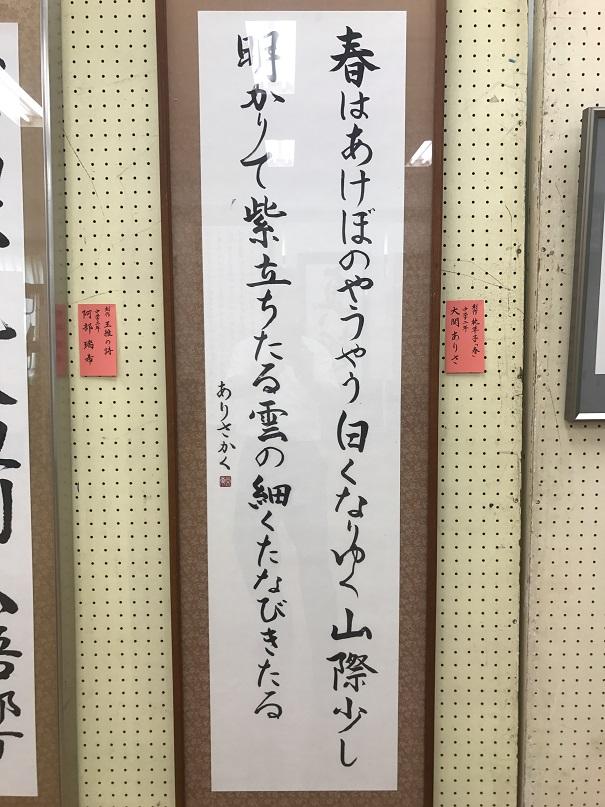 春はあけぼのやうやう白くなりゆく山際少し
明かりて紫立ちたる雲の細くたなびきたる
ありさかく
創作 枕草子「春」
中学二年
大関 ありさ
創作 王維の詩
阿部 瑞希